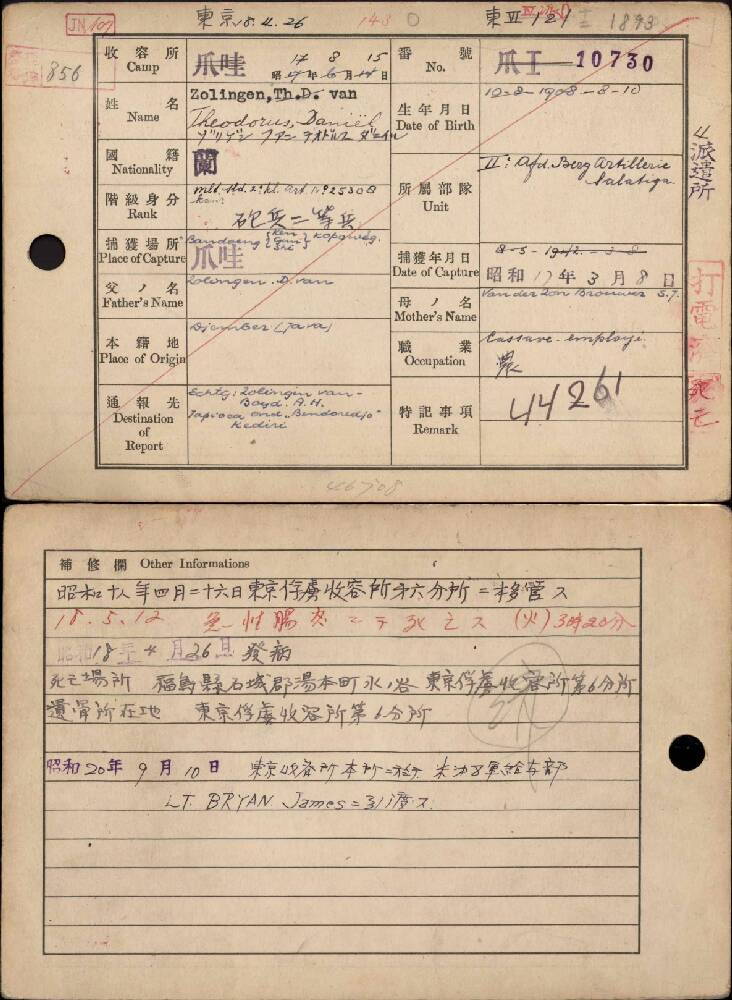 JN 107
東京 18.4.26
143
東III 121
1893
856
收容所
Camp
爪哇
17 8 15
昭 年 月 日
番號
No.
爪I 10730
姓名
Name
Zolingen, Th.D. van
Theodorus, Daniël
ゾリゲン フアン テオドルス ダニイル
生年月日
Date of Birth
10-8-1908-8-10
國籍
Nationality
蘭
所屬部隊
Unit
II: Afd. Berg Artillerie
Salatiga
階級身分
Rank
砲兵二等兵
捕獲場所
Place of Capture
Bandoeng
爪哇
捕獲年月日
Date of Capture
8-3-1942-3-8
昭和17年3月8日
父ノ名
Father's Name
Zolingen. D. van
母ノ名
Mother's Name
Van der Zon Brouwer S.J.
本籍地
Place of Origin
Djember (Java)
職業
Occupation
Cassave-employé
農
通報先
Destination
of
Report
Echtg: Zolingen van-
Boyd. A.H.
Tapioca ond „Bendoredjo"
Kediri
特記事項
Remark
44261
4派遣所
打電済
死亡
46708
補修欄 Other Informations
昭和十八年四月二十六日東京俘虜收容所第六分所ニ移管ス
18.5.12 急性腸炎ニテ死亡ス (火)3時20分
昭和18年4月26日 發病
死亡場所 福島縣石城郡湯本町水ノ谷 東京俘虜收容所第6分所
遺骨所在地 東京俘虜收容所第6分所
昭和20年9月10日 東京收容所本所ニ於テ 米
LT. BRYAN Jamesニ引渡ス